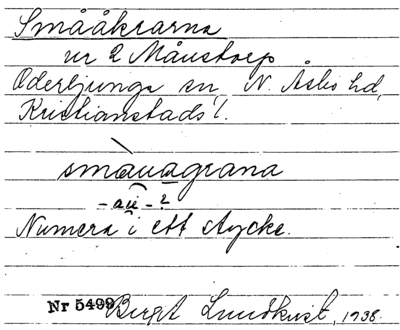 Smååkrarna
nr 2 Månstorp
Oderljunga sn, N. Åsbo hd,
Kristianstads l.
småuagrana
- au - ?
Numera i ett stycke.
Nr 5499 Birgit Lundkvist, 1938.